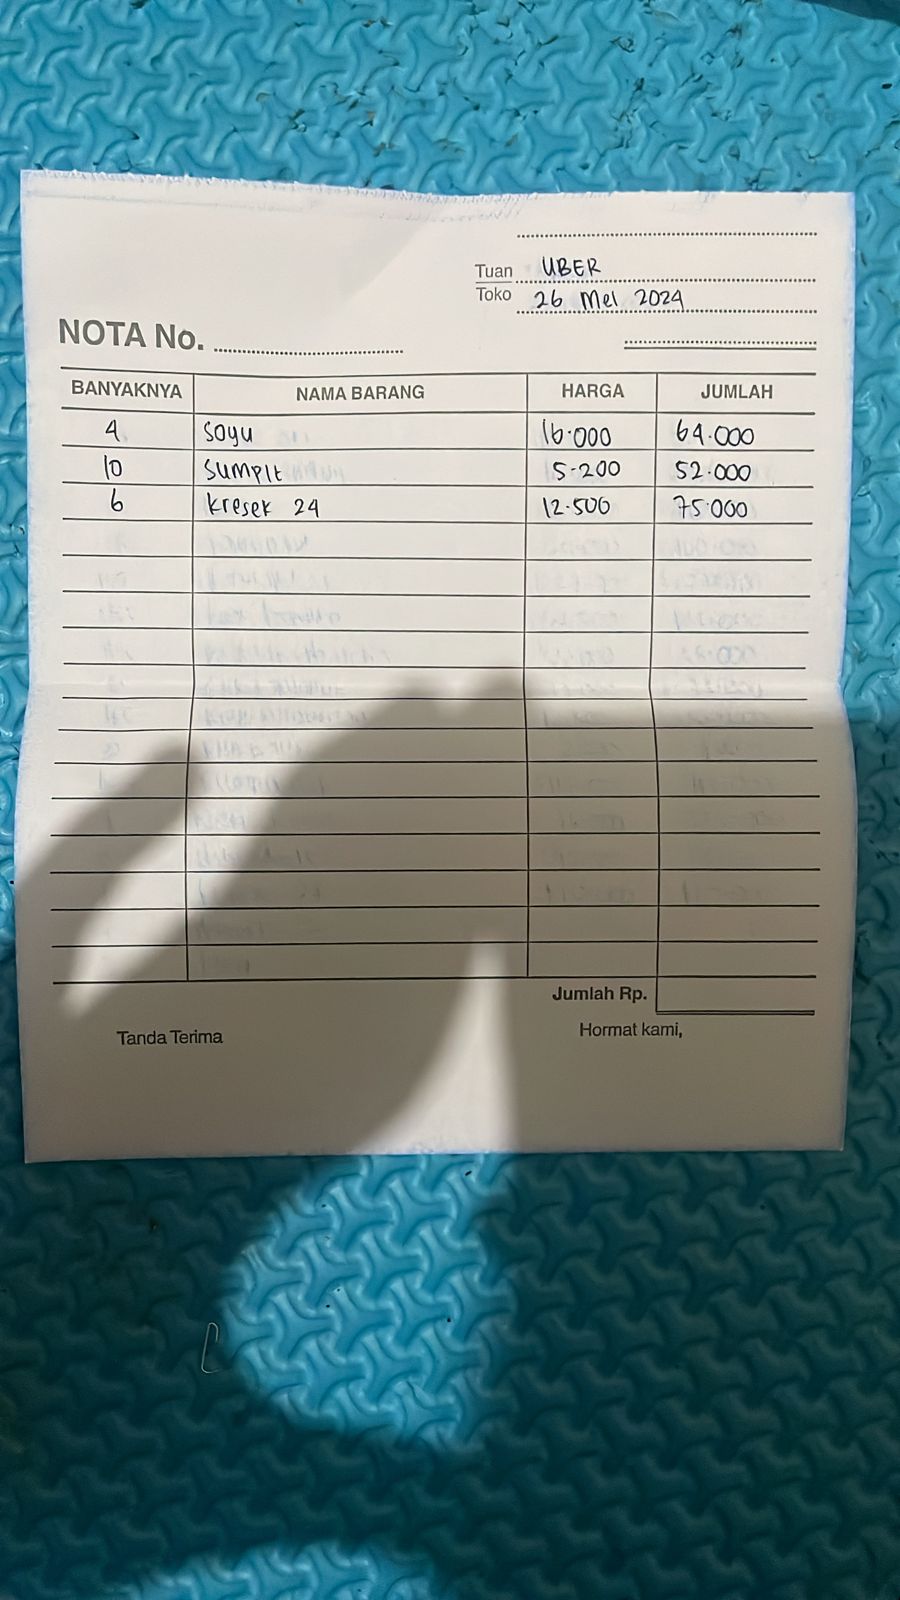 Tuan UBER
Toko 26 Mei 2024
NOTA No.
BANYAKNYA NAMA BARANG HARGA JUMLAH
4 Soyu 16.000 64.000
10 Sumpit 5.200 52.000
6 Kresek 24 12.500 75.000
Jumlah Rp.
Tanda Terima Hormat kami,